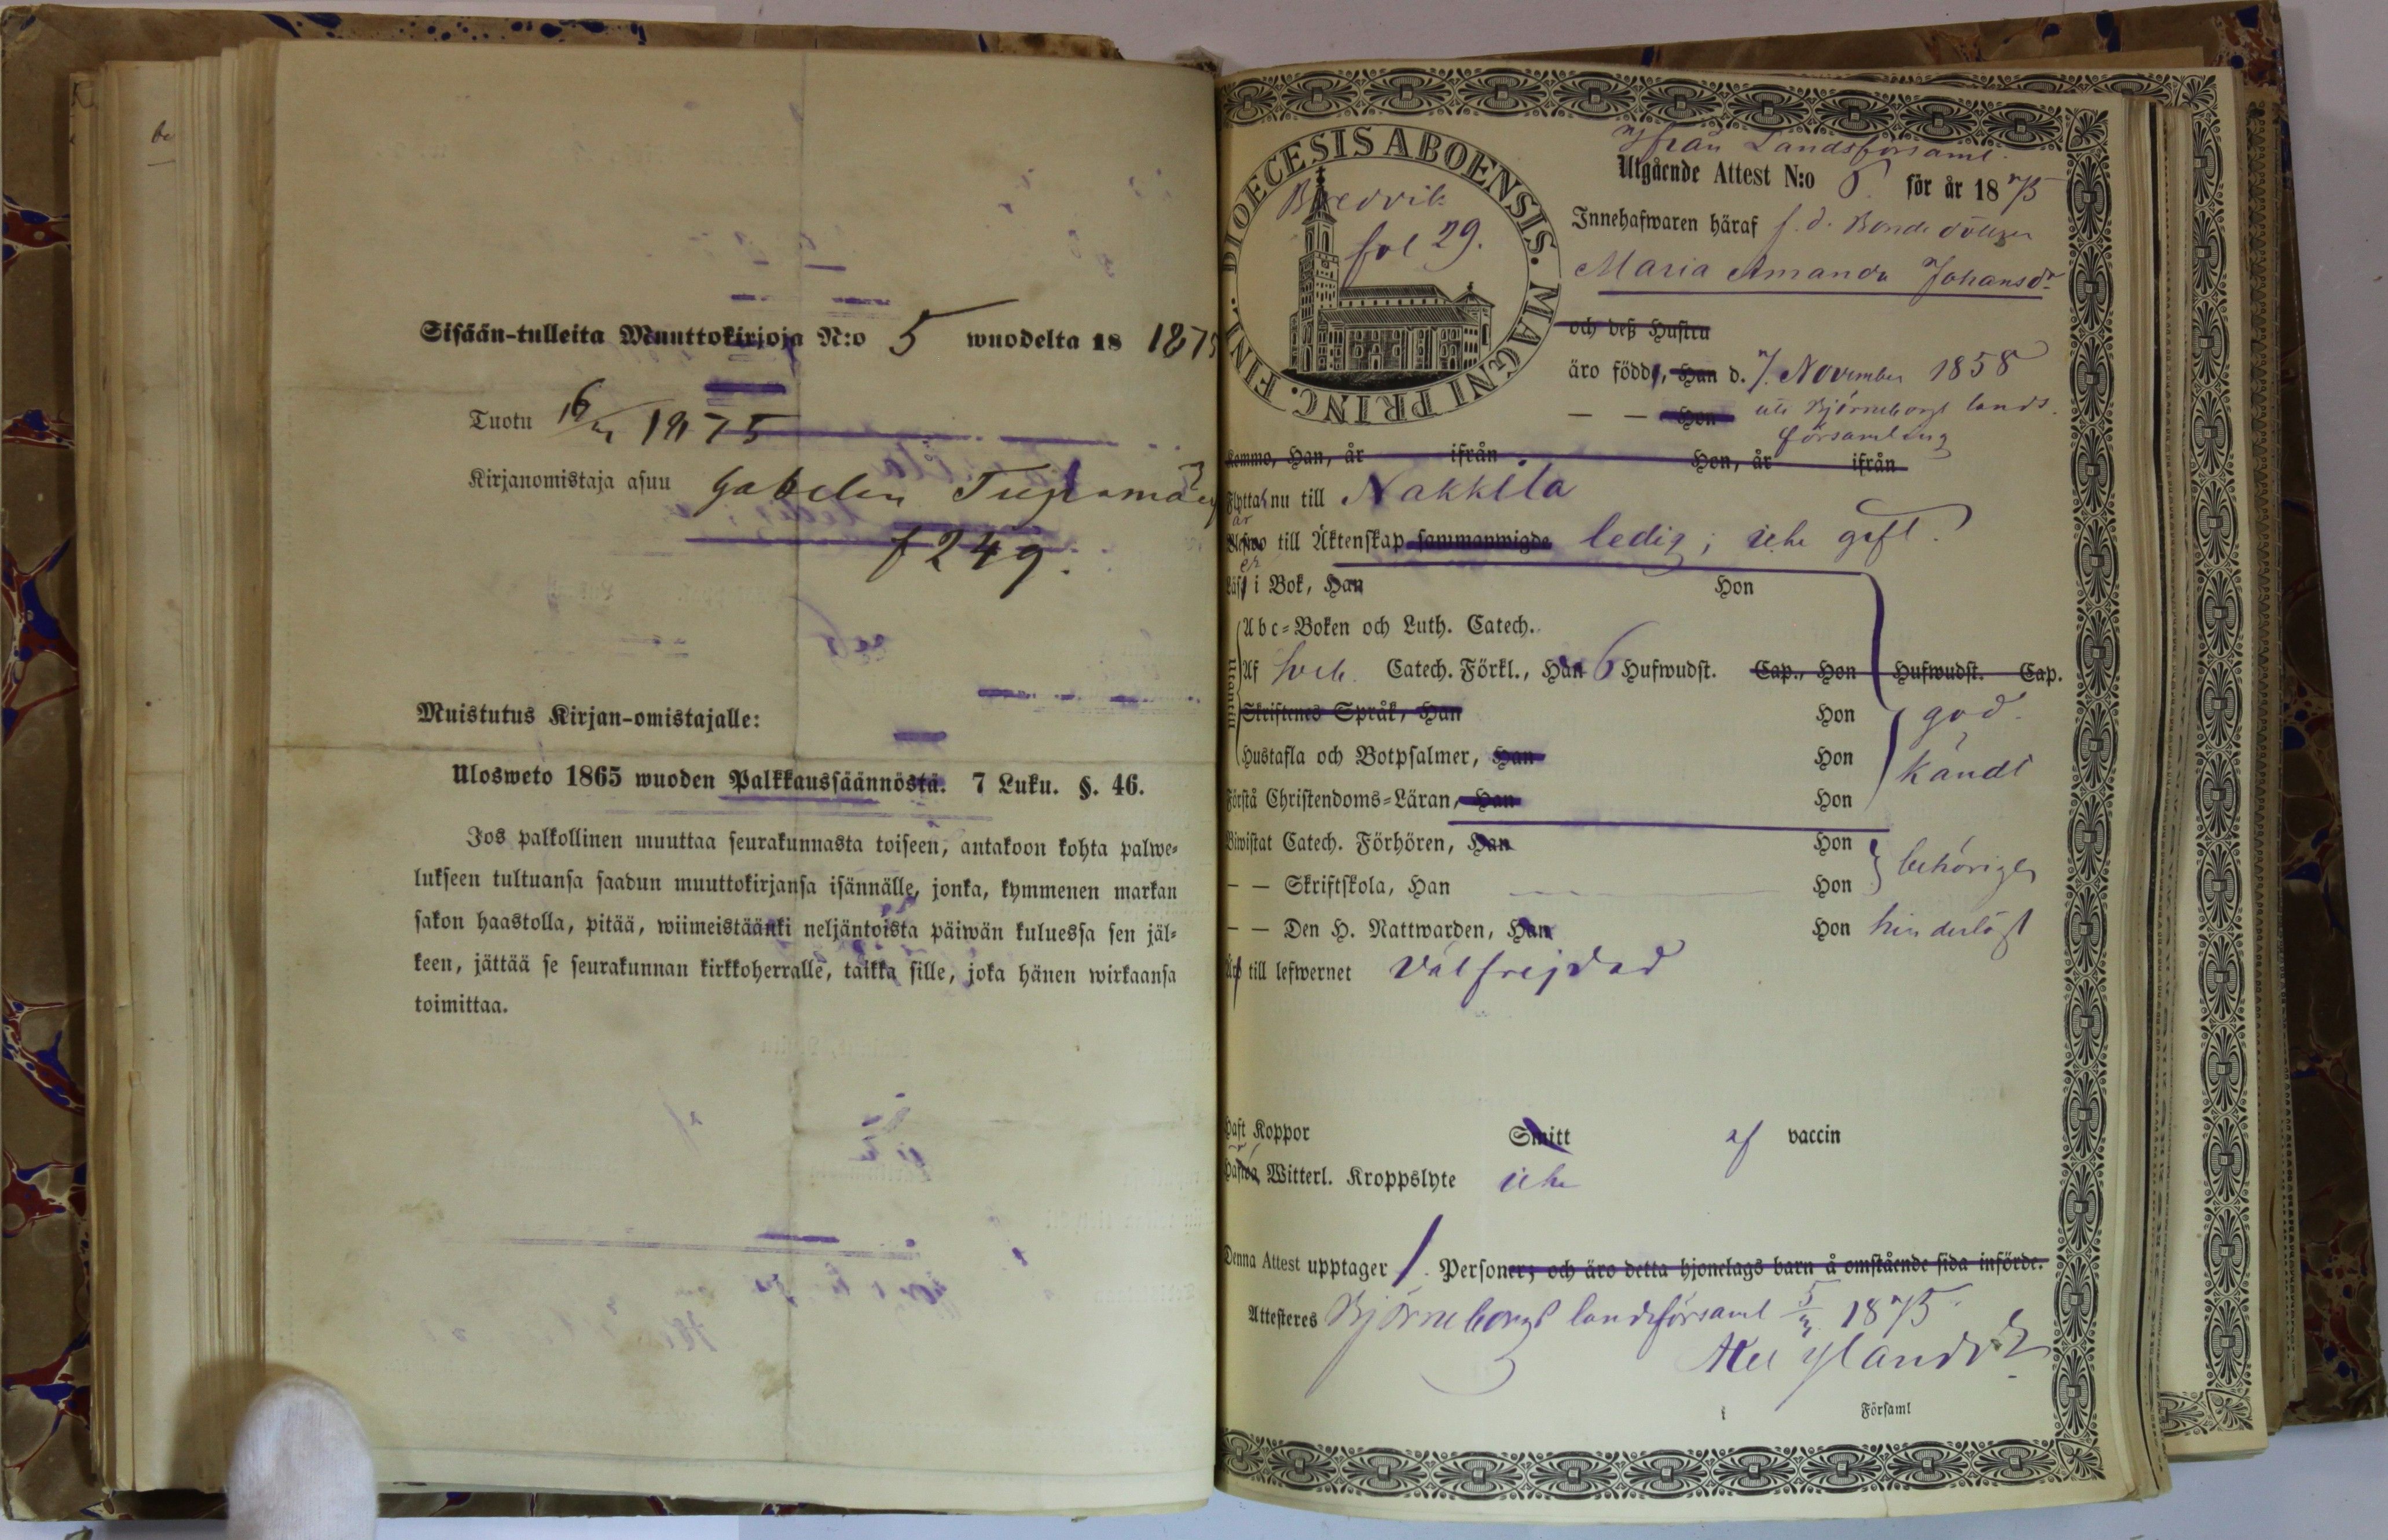 be
Sisään-tulleita Muuttokirjoja N:o 5 wuodelta 18 1875
Tuotu 16/ 1875
Kirjanomistaja asuu
f 249.
Muistutus Kirjan-omistajalle:
Ulosweto 1865 wuoden Palkkaussäännöstä. 7 Luku. §. 46.
Jos palkollinen muuttaa seurakunnasta toiseen, antakoon kohta palwe-
lukseen tultuansa saadun muuttokirjansa isännälle, jonka, kymmenen markan
sakon haastolla, pitää, wiimeistäänki neljäntoista päiwän kuluessa sen jäl-
keen, jättää se seurakunnan kirkkoherralle, taikka sille, joka hänen wirkaansa
toimittaa.
DIOECESIS ABOENSIS. MAGNI PRINC. FINL.
Bredvik
fol 29.
Ifrån Landsförsaml.
Utgående Attest N:o 5. för år 1875
Innehafwaren häraf f. d. Bonde
Maria Amanda Johansdr
och deß Hustru
äro födde, Han d. 7. November 1858
— — Hon uti Björneborgs lands.
församling
Kommo, Han, år ifrån Hon, år ifrån
Flytta nu till Nakkila
är
till Äktenskap sammanwigde ledig; icke gift.
er
Läs i Bok, Han Hon
Abc-Boken och Luth. Catech.
Utantill
Af Sveb. Catech. Förkl., Han 6 Hufwudst. Cap., Hon Hufwudst. Cap.
Skriftenes Språk, Han Hon god.
Hustafla och Botpsalmer, Han Hon känd
Förstå Christendoms-Läran, Han Hon
Biwistat Catech. Förhören, Han Hon behörigen
— — Skriftskola, Han Hon
— — Den H. Nattwarden, Han Hon hinderlöst
Äro till lefwernet välfrejdad
Haft Koppor Smitt af vaccin
Hafwa Witterl. Kroppslyte icke
Denna Attest upptager 1. Personer; och äro detta hjonelags barn å omstående sida införde.
Attesteres Björneborgs landsförsaml 5/ 1875
Församl